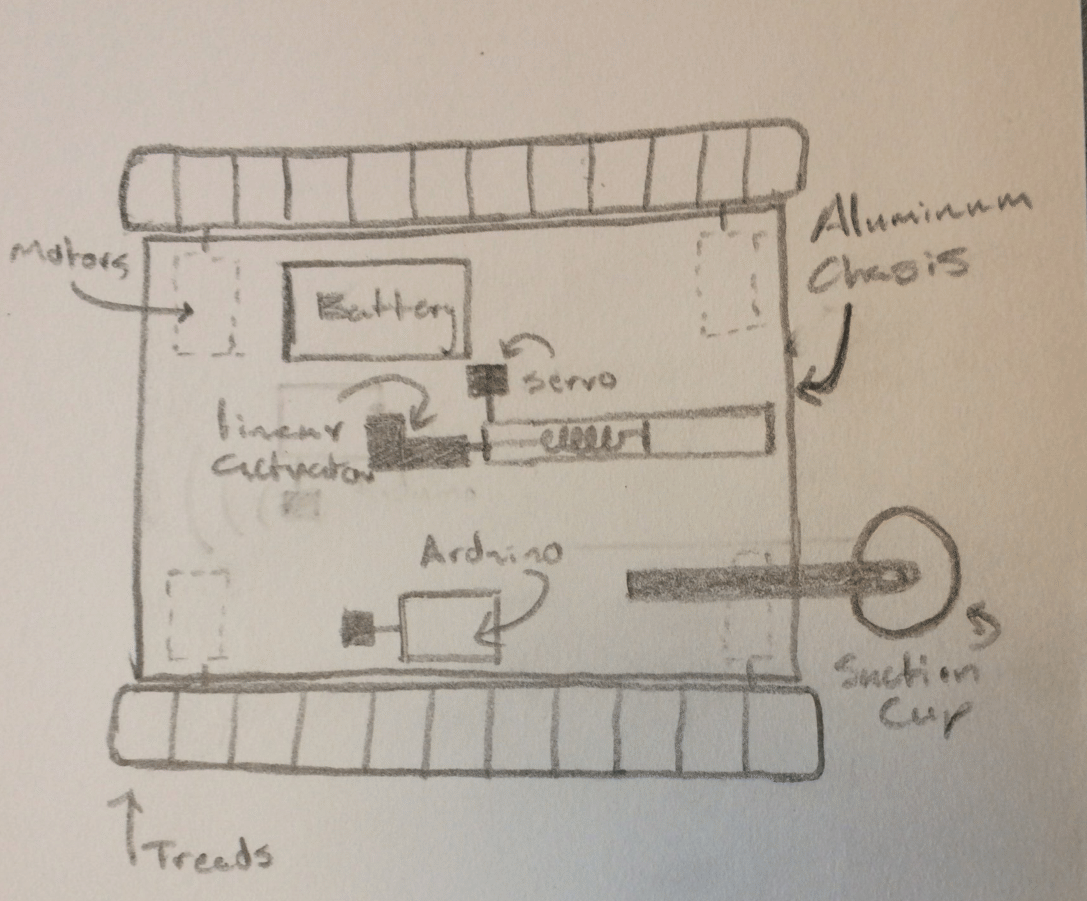 Motors
Aluminum
Chasis
Battery
servo
linear
actuator
Arduino
Suction
Cup
Treads